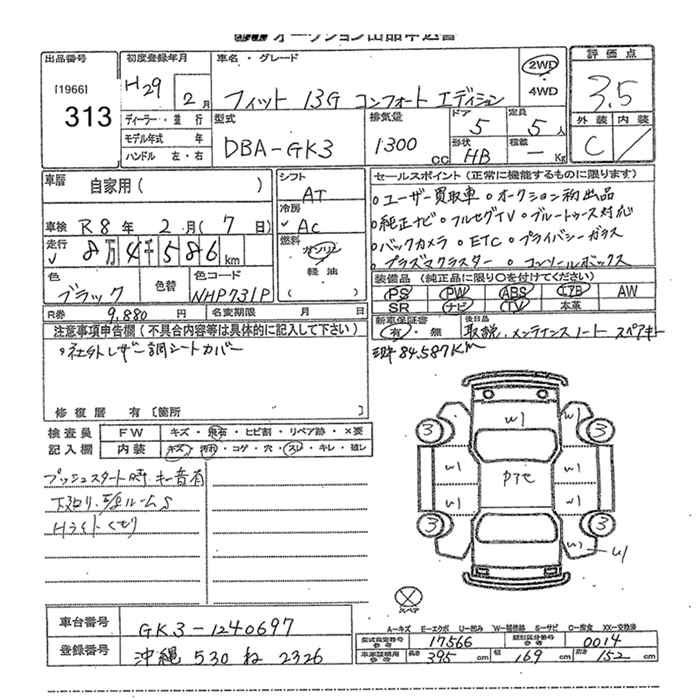 オークション出品申込書
出品番号
[1966]
313
初度登録年月
H29年 2月
ディーラー・並行
モデル年式 年
ハンドル 左・右
車名・グレード
フィット 13G コンフォートエディション
2WD
4WD
型式
DBA-GK3
排気量
1300cc
ドア
5
定員
5人
形状
HB
積載
- Kg
評価点
3.5
外装 内装
C
車歴
自家用( )
車検 R8年 2月(7日)
走行 8万4千586km
色
ブラック
色替
色コード
NHP731P
R券 9,880円
名変期限 月 日
シフト
AT
冷房
AC
燃料
ガソリン
軽油
セールスポイント(正常に機能するものに限ります)
・ユーザー買取車 ・オークション初出品
・純正ナビ・フルセグTV・ブルートゥース対応
・バックカメラ・ETC・プライバシーガラス
・プラズマクラスター・コンソールボックス
装備品(純正品に限り〇を付けてください)
PS PW ABS エアB AW
SR ナビ TV 本革
新車保証書
有・無
後日品
取説、メンテナンスノート スペアキー
84,587Km
注意事項申告欄(不具合内容等は具体的に記入して下さい)
・社外レザー調シートカバー
修復歴 有〔箇所 〕
検査員
記入欄
FW キズ・飛石・ヒビ割・リペア跡・×要
内装 キズ・汚れ・コゲ・穴・スレ・キレ・破レ
プッシュスタート時 キー音有
下廻り、
ルームS
Hライトくもり
W1
W1
W1
W1
W1
W1
W1
U1
3
3
3
3
スペア
A-キズ E-エクボ U-凹み W-補修跡 S-サビ C-腐食 XX-交換済
車台番号
GK3-1240697
登録番号
沖縄 530 ね 2326
型式指定番号
参考
17566
類別区分番号
参考
0014
車庫証明用
参考
長さ 395cm 幅 169cm 高さ 152cm